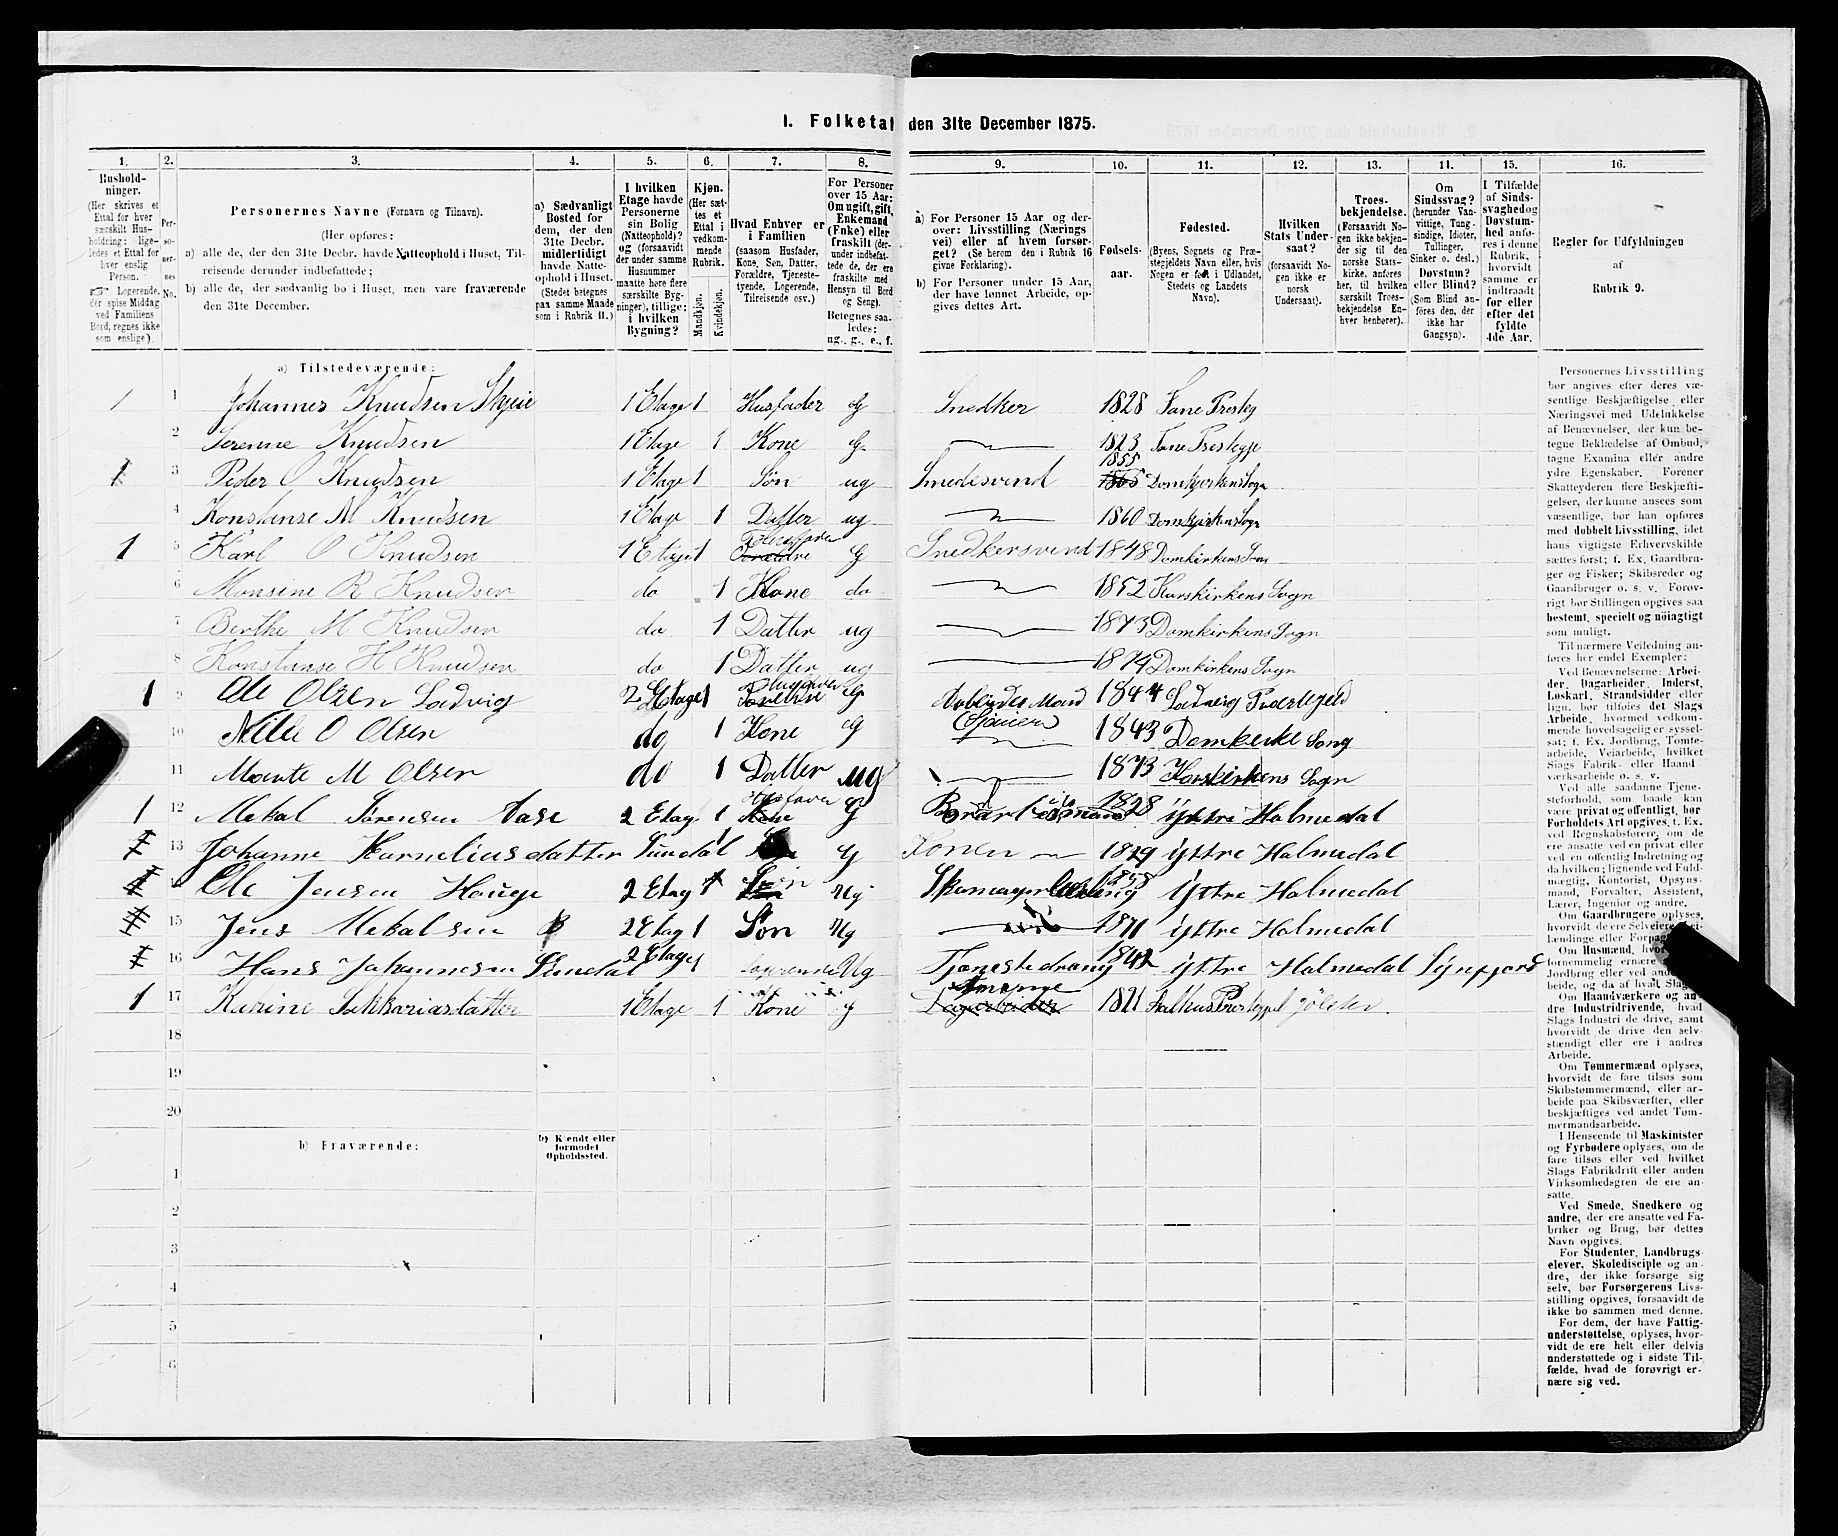 1. Folketal den 31te December 1875.
1. 2. 3. 4. 5. 6. 7. 8. 9. 10. 11. 12. 13. 14. 15. 16.
Hushold-
ninger.
(Her skrives et
Ettal for hver
særskilt Hus-
holdning; lige-
ledes et Ettal for
hver enslig
Person.
Logerende,
der spise Middag
ved Familiens
Bord, regnes ikke
som enslige).
Per-
so-
ner-
nes
No.
Personernes Navne (Fornavn og Tilnavn).
(Her opføres:
a) alle de, der den 31te Decbr. havde Natteophold i Huset, Til-
reisende derunder indbefattede;
b) alle de, der sædvanlig bo i Huset, men vare fraværende
den 31te December.
a) Sædvanligt
Bosted for
dem, der den
31te Decbr.
midlertidigt
havde Natte-
ophold i Huset.
(Stedet betegnes
paa samme Maade
som i Rubrik 11.)
I hvilken
Etage havde
Personerne
sin Bolig
(Natteophold)?
og (forsaavidt
der under samme
Husnummer
maatte høre flere
særskilte Byg-
ninger), tillige:
i hvilken
Bygning?
Kjøn.
(Her sæt-
tes et
Ettal i
vedkom-
mende
Rubrik.
Mandkjøn.
Kvindekjøn.
Hvad Enhver er
i Familien
(saasom Husfader,
Kone, Søn, Datter,
Forældre, Tjeneste-
tyende, Logerende,
Tilreisende osv.)
For Personer
over 15 Aar:
Om ugift, gift,
Enkemand
(Enke) eller
fraskilt (der-
under indbefat-
tede de, der ere
fraskilte med
Hensyn til Bord
og Seng).
Betegnes saa-
ledes:
ug., g., e., f.
a) For Personer 15 Aar og der-
over: Livsstilling (Nærings
vei) eller af hvem forsør-
get? (Se herom den i Rubrik 16
givne Forklaring).
b) For Personer under 15 Aar,
der have lønnet Arbeide, op-
gives dettes Art.
Fødsels-
aar.
Fødested.
(Byens, Sognets og Præ-
stegjeldets Navn eller, hvis
Nogen er født i Udlandet,
Stedets og Landets
Navn).
Hvilken
Stats Under-
saat?
(forsaavidt No-
gen ikke er
norsk
Undersaat).
Troes-
bekjendelse.
(Forsaavidt No-
gen ikke bekjen-
der sig til den
norske Stats-
kirke, anføres
her, til hvilken
særskilt Troes-
bekjendelse En-
hver henhører).
Om
Sindssvag?
(herunder Van-
vittige, Tung-
sindige, Idioter,
Tullinger,
Sinker o. desl.)
Døvstum?
eller Blind?
(Som Blind an-
føres den, der
ikke har
Gangsyn).
I Tilfælde
af Sinds-
svaghed og
Døvstum-
hed anfø-
res i denne
Rubrik,
hvorvidt
samme er
indtraadt
før eller
efter det
fyldte
4de Aar.
Regler for Udfyldningen
af
Rubrik 9.
a) Tilstedeværende:
1 1 Johannes Knudsen Skjeie 1 Etage 1 Husfader G Snedker 1828 Fane Presteg
2 Serenne Knudsen 1 Etage 1 Kone G 1823 Fane Prestegje
1 3 Peder O Knudsen 1 Etage 1 Søn ug Smedesvend 1855 Domkjerkens Sogn
4 Konstanse M Knudsen 1 Etage 1 Datter ug 1860 Domkjerkens Sogn
1 5 Karl O Knudsen 1 Etage 1 Husfader G Snedkersvend 1848 Domkirkens Sogn
6 Monsine R Knudsen do 1 Kone do 1852 Korskirkens Sogn
7 Berthe M Knudsen do 1 Datter ug 1873 Domkirkens Sogn
8 Konstanse H Knudsen do 1 Datter ug 1874 Domkirkens Sogn
1 9 Ole Olsen Ladvig 2 Etage 1 Husfader G Arbeides Mand 1844 Ladvig Prestegjeld
10 Nille O Olsen do 1 Kone G 1843 Domkerke Song
11 Marite M Olsen do 1 Datter ug 1873 Korskirkens Sogn
1 12 Mekal Sørensen Aase 2 Etag 1 Husfader G 1828 ÿttre Holmedal
13 Johanne Kornelius datter Sundal 1 G Konen 1829 ÿttre Holmedal
Ole Jensen Hauge 2 Etag 1 Søn Ug Skomagerlærling 1858 ÿttre Holmedal
15 Jens Mekalsen 2 Etag 1 Søn Ug 1871 ÿttre Holmedal
16 Hans Johannesen Sundal 2 Etage 1 Logerende Ug Tjenestedreng 1842 ÿttre Holmedal Synfjord
1 17 Karine Sakkariasdatter 1 Etage 1 Kone g 1821 Prestegjel Jölster.
18
19
20
b) Fraværende:
b) Kjendt eller
formodet
Opholdssted.
1
2
3
4
5
6
Personernes Livsstilling
bør angives efter deres væ-
sentlige Beskjæftigelse eller
Næringsvei med Udelukkelse
af Benævnelser, der kun be-
tegne Beklædelse af Ombud,
tagne Examina eller andre
ydre Egenskaber. Forener
Skatteyderen flere Beskjæfti-
gelser, der kunne ansees som
væsentlige, bør han opføres
med dobbelt Livsstilling, idet
hans vigtigste Erhvervskilde
sættes først; f. Ex. Gaardbru-
ger og Fisker; Skibsreder og
Gaardbruger o. s. v. Forøv-
rigt bør Stillingen opgives saa
bestemt, specielt og nöiagtigt
som muligt.
Til nærmere Veiledning an-
føres her endel Exempler:
Ved Benævnelserne: Arbei-
der, Dagarbeider, Inderst,
Løskarl, Strandsidder eller
lign. bør tilføies det Slags
Arbeide, hvormed vedkom-
mende hovedsagelig er syssel-
sat; f. Ex. Jordbrug, Tomte-
arbeide, Veiarbeide, hvilket
Slags Fabrik- eller Haand-
værksarbeide o. s. v.
Ved alle saadanne Tjene-
steforhold, som baade kan
være privat og offentligt, bør
Forholdets Art opgives, f. Ex.
ved Regnskabsførere, om de
ere ansatte ved en privat eller
ved en offentlig Indretning og
da hvilken; lignende ved Fuld-
mægtig, Kontorist, Opsyns-
mand, Forvalter, Assistent,
Lærer, Ingeniør og andre.
Om Gaardbrugere oplyses,
hvorvidt de ere Selveiere, Lei-
lændinge eller Forpagtere.
Om Husmænd,
fornemmelig ernære sig ved
Jordbrug eller ved andet Ar-
beide, og da af hvad Slags.
Om Haandværkere og an-
dre Industridrivende, hvad
Slags Industri de drive, samt
hvorvidt de drive den selv-
stændigt eller ere i andres
Arbeide.
Om Tømmermænd oplyses,
hvorvidt de fare tilsøs som
Skibstømmermænd, eller ar-
beide paa Skibsværfter, eller
beskjæftiges ved andet Tøm-
mermandsarbeide.
I Henseende til Maskinister
og Fyrbødere oplyses, om de
fare tilsøs eller ved hvilket
Slags Fabrikdrift eller anden
Virksomhedsgren de ere an-
satte.
Ved Smede, Snedkere og
andre, der ere ansatte ved Fa-
briker og Brug, bør dettes
Navn opgives.
For Studenter, Landbrugs-
elever, Skoledisciple og an-
dre, der ikke forsørge sig
selv, bør Forsørgerens Livs-
stilling opgives, forsaavidt de
ikke bo sammen med denne.
For dem, der have Fattig-
understøttelse, oplyses, hvor-
vidt de ere helt eller delvis
understøttede og i sidste Til-
fælde, hvad de forøvrigt er-
nære sig ved.